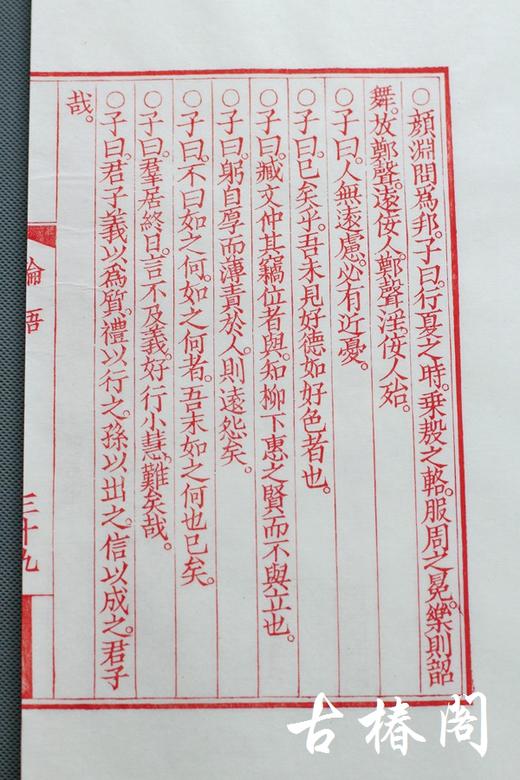 ○顏淵問爲邦。子曰。行夏之時。乘殷之輅。服周之冕。樂則韶
舞。放鄭聲。遠佞人。鄭聲淫。佞人殆。
○子曰。人無遠慮。必有近憂。
○子曰。已矣乎。吾未見好德如好色者也。
○子曰。臧文仲其竊位者與。知柳下惠之賢而不與立也。
○子曰。躬自厚而薄責於人。則遠怨矣。
○子曰。不曰如之何。如之何者。吾末如之何也已矣。
○子曰。羣居終日。言不及義。好行小慧。難矣哉。
○子曰。君子義以爲質。禮以行之。孫以出之。信以成之。君子
哉。
論語
三十九
古椿閣